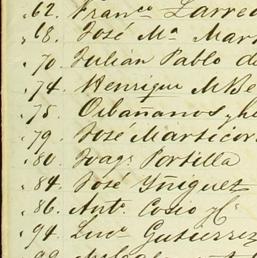 62. Franco. Larre
68. José Ma. Mar
70. Julián Pablo de
74. Henrique M. Be
75.
79. José Marticor
80. Joaqn. Portilla
84. José Yñiguez
86. Anto. Cosio y Ca.
94. Luco. Gutierrez